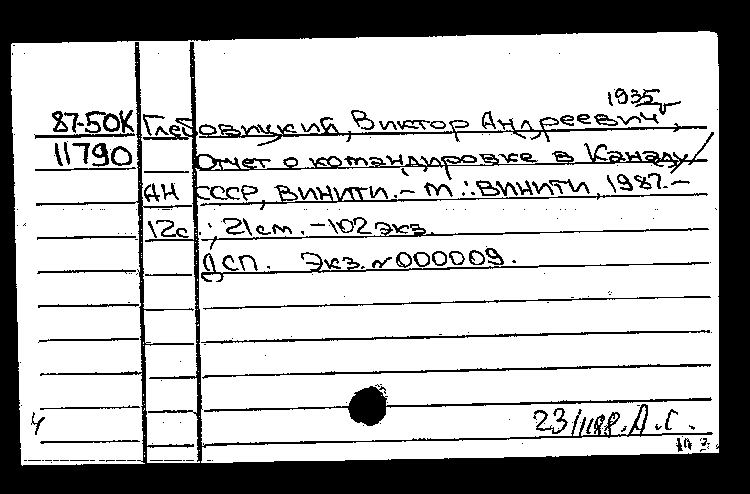 1935
87-50К Глебовицкий, Виктор Андреевич,
11790 Отчет о командировке в Канаду/
АН СССР, ВИНИТИ.-М.:ВИНИТИ, 1987.-
12с.; 21см. -102 экз.
ДСП. Экз.№000009.
Ч
А.С.